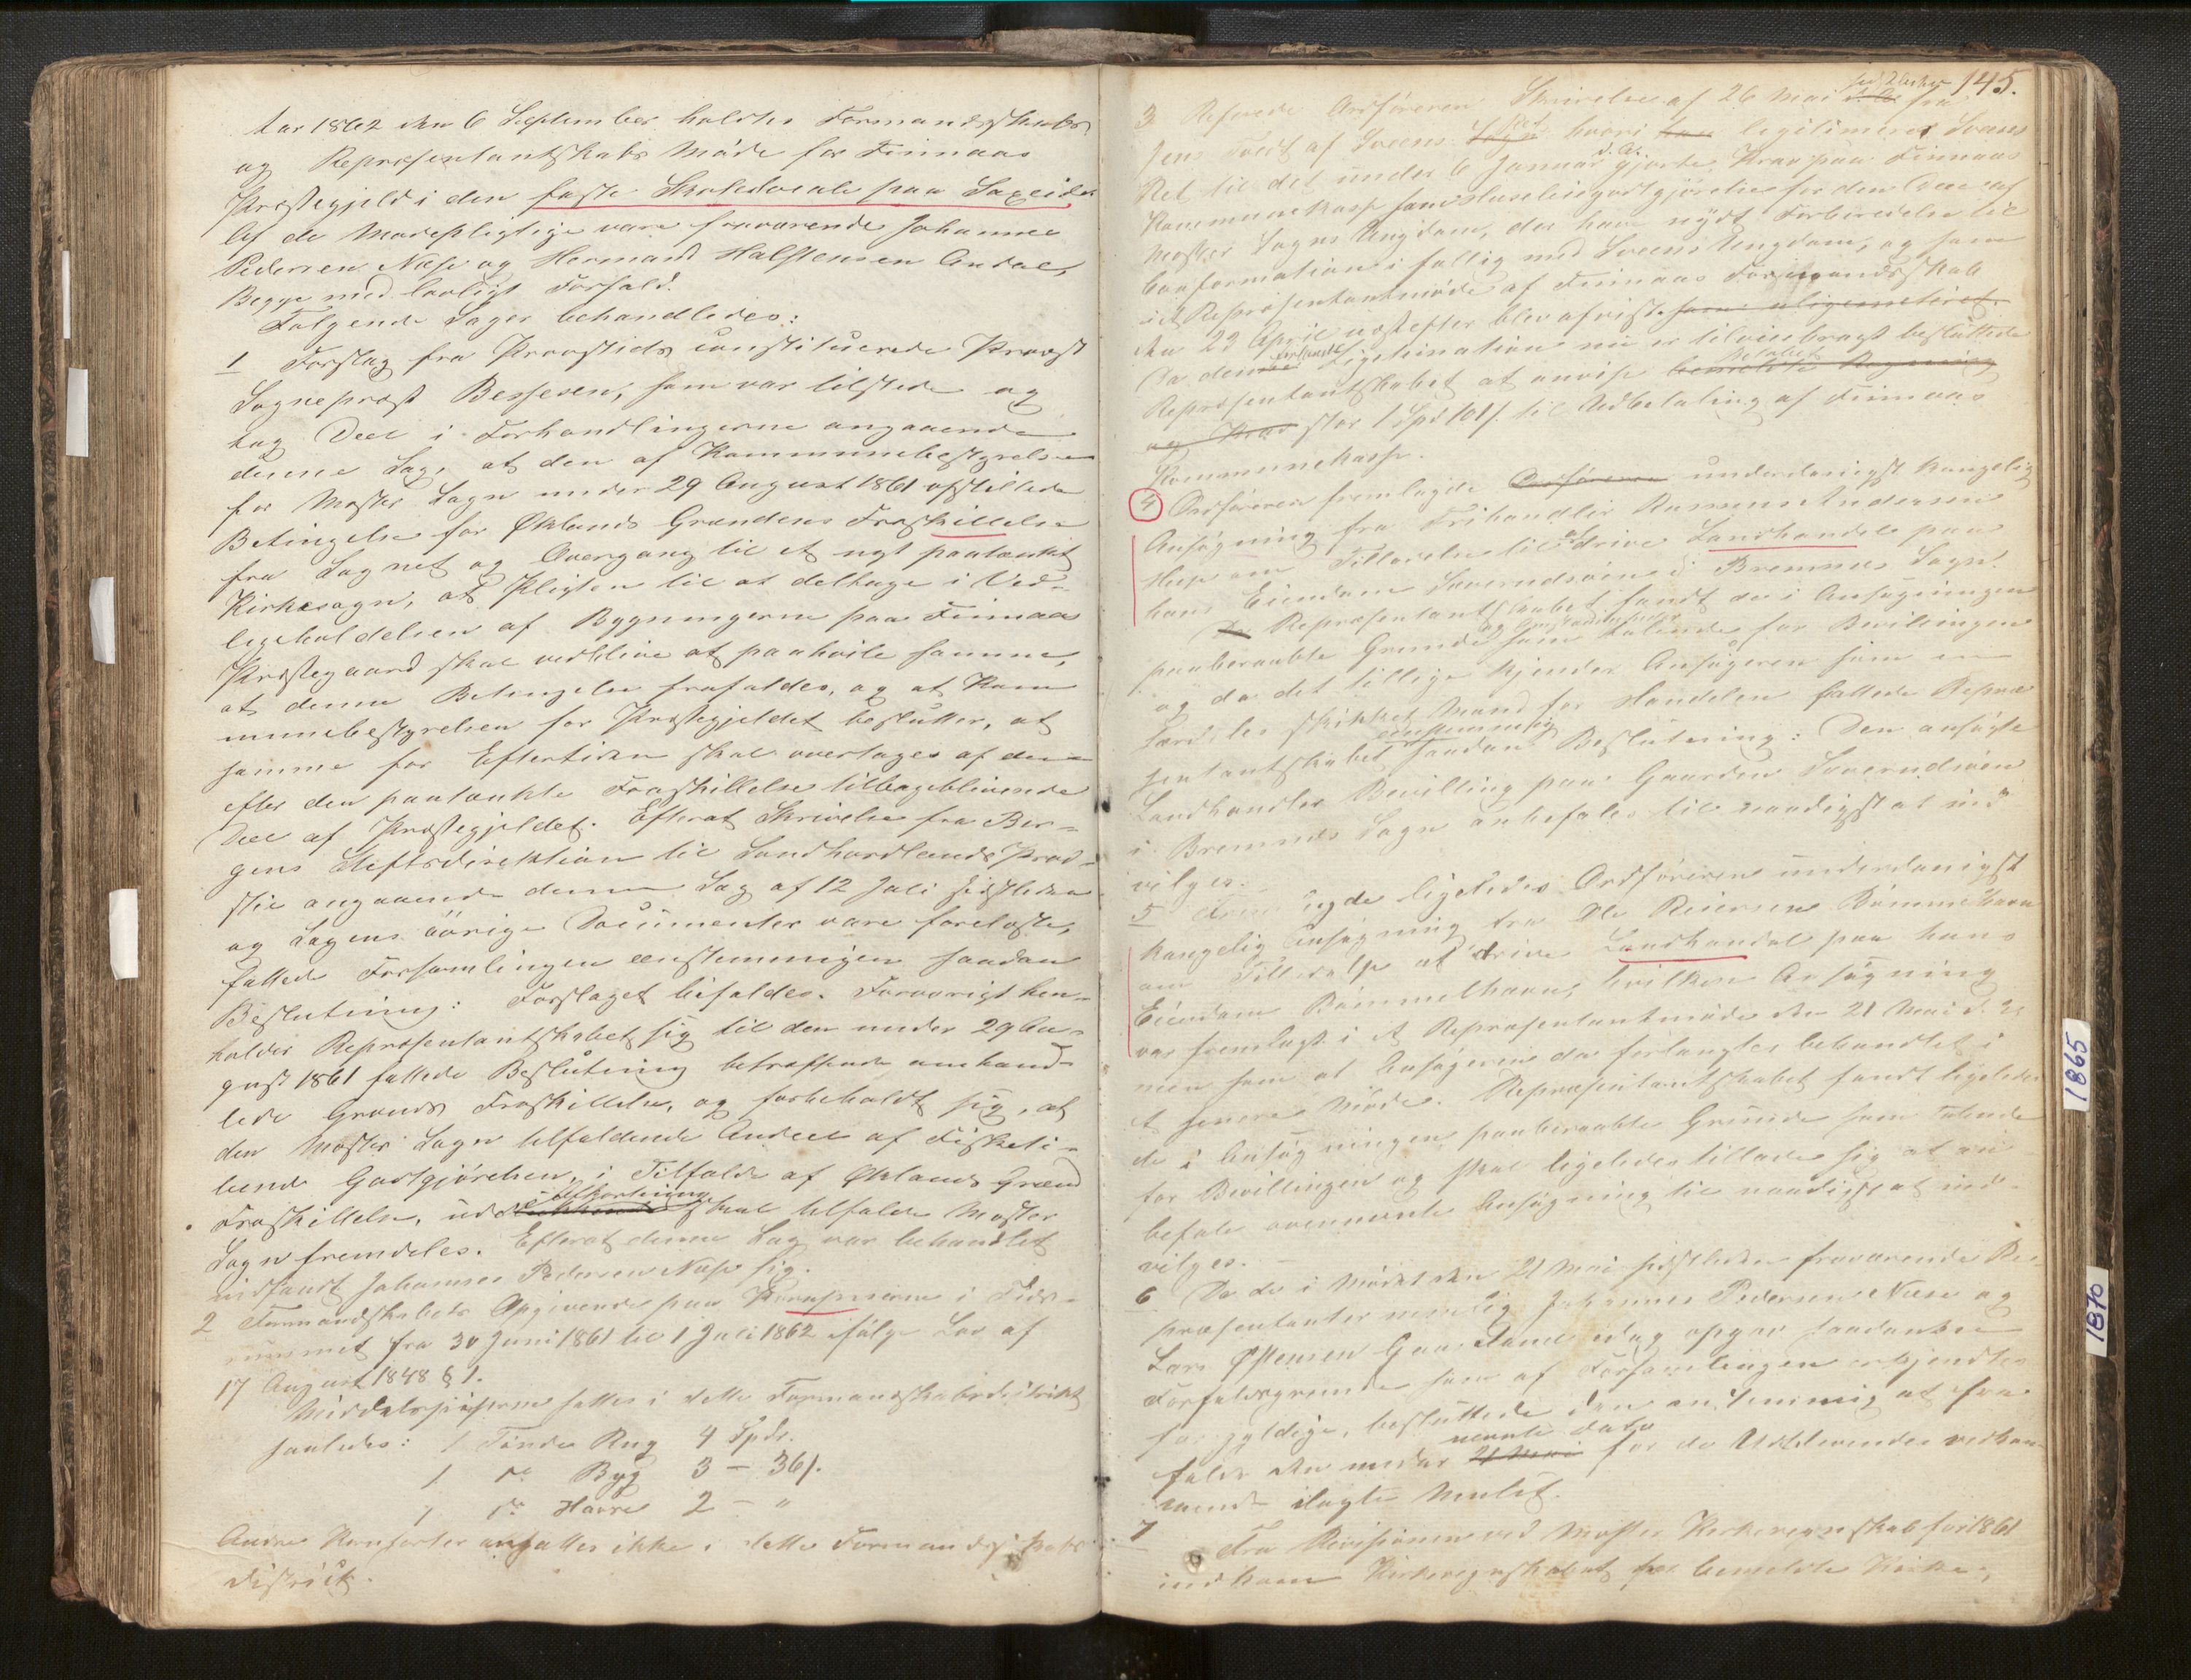 Aar 1862 den 6 September holdtes Formandskabs
og Repræsentantskabs Møde for Finnaas
Præstegjeld i den faste Skolelocale paa Saxeide
Af de Mødepligtige vare fraværende Johannes
Pedersen Næse og Hermand Halstensen Andal,
Begge med lovligt Forfald.
Følgende Sager behandledes:
1 Forslag fra Provstiets constituerede Provst
Sognepræst Bessesen, som var tilstede og
tog Deel i Forhandlingerne angaaende
denne Sag, at den af Kommunebestyrelsen
for Moster Sogn under 29 August 1861 opstillede
Betingelse for Øklands Grændens Fraskillelse
fra Sognet og Overgang til et nyt paatænkt
Kirkesogn, at Pligten til at deltage i Ved-
ligeholdelsen af Bygningerne paa Finnaas
Præstegaard skal vedblive at paahvile samme,
at denne Betingelse frafaldes, og at Kom
munebestyrelsen for Præstegjeldet beslutter, at
samme for Eftertiden skal overtages af den
efter den paatænkte Fraskillelse tilbageblivende
Deel af Præstegjeldet. Efterat Skrivelse fra Ber-
gens Stiftsdirektion til Søndhordlands Prov-
stie angaaende denne Sag af 12 Juli sidstleden
og Sagens øvrige Documenter vare foreløste,
fattede Forsamlingen eenstemmigen saadan
Beslutning: Forslaget bifaldes. Forøvrigt hen-
holder Repræsentantskabet sig til den under 29 Au-
gust 1861 fattede Beslutning betræffende omhand-
lede Grænds Fraskillelse, og forbeholdt sig, at
den Moster Sogn tilfaldende Andeel af Fisketi-
ende Godtgjörelsen, i Tilfælde af Øklands Grænd
Fraskillelse, uden Afkortning skal tilfalde Moster
Sogn fremdeles. Efterat denne Sag var behandlet
indfandt Johannes Pedersen Næse sig.
2 Formandskabets Opgivende paa Kornpriserne i Tids-
rummet fra 30 Juni 1861 til 1 Juli 1862 ifølge Lov af
17 August 1848 § 1.
Middelspriserne sættes i dette Formandskabsdistrikt
saaledes: 1 Tønde Rug 4 Spdr.
1 do Byg 3 – 36 s.
1 do Havre 2 – "
Andre Kornsorter ansættes ikke i dette Formandskabs
district.
145.
3 Referede Ordføreren Skrivelse af 26 Mai sidstleden fra
Jens Tvedt af Sveens hvori legitimeres Sveens
Ret til det under 6 Januar d. A. gjorte Krav paa Finnaas
Kommunekasse som Huusleiegodtgjörelse for den Deel af
Moster Sogns Ungdom, der have nydt Forberedelse til
Confirmation i fællig med Sveens Ungdom, og som
i et Repræsentantmøde af Finnaas Formandsskab
den 22 April næstefter blev afvist som uligemeteret.
Da denne forlandte Ligetimation nu er tilveiebragt besluttede
Repræsentantskabet at anvise bemeldte Regning
og Krav stor 1 Spd 101 s. til Udbetaling af Finnaas
Kommunekasse.
4 Ordføreren fremlagde Ordføreren underdanigst kongelig
Ansögning fra Frihandler Rasmus Andersen
om Tilladelse til at drive Landhandel paa
hans Eiendom Søverudsöen i Bremnes Sogn.
De Repræsentantskabet fandt de i Ansögningen
paaberaabte Grunde og Omstændigheder som talende for Bevillingen
og da det tillige kjender Ansögeren som en
særdeles skikket Mand for Handelen fattede Repræ
sentantskabet eenstemmig saadan Beslutning: Den ansögte
Landhandler Bevilling paa Gaarden Søverudsöen
i Bremnes Sogn anbefales til naadigst at ind
vilges.
5 Fremlagde ligeledes Ordføreren underdanigst
kongelig Ansögning fra Ole Reiersen Bömmelhavn
om Tilladelse at drive Landhandel paa hans
Eiendom Bömmelhavn, hvilken Ansögning
var fremlagt i et Repræsentantmøde den 21 Mai d. A.
men som at Ansögeren da forlangtes behandlet i
et senere Møde. Repræsentantskabet fandt ligeledes
de i Ansögningen paaberaabte Grunde som talende
for Bevillingen og skal ligeledes tillade sig at an
befale ovennævnte Ansögning til naadigst at ind-
vilges. –
6 Da de i Mødet den 21 Mai sidstleden fraværende Re-
præsentanter nemlig Johannes Pedersen Næse og
Lars Østensen Gaasland idag opgav saadanne
Forfaldsgrunde som af Forsamlingen erkjendtes
for gyldige, besluttede den eenstemmig at fra
falde den under 21 Mai nævnte Dato for de Udeblevendes vedkom
mende ilagte Mulct.
7
Fra Revisionen ved Moster Kirkeregnskab for 1861
indkom Kirkeregnskabet for bemeldte Kirke,
1865
1870